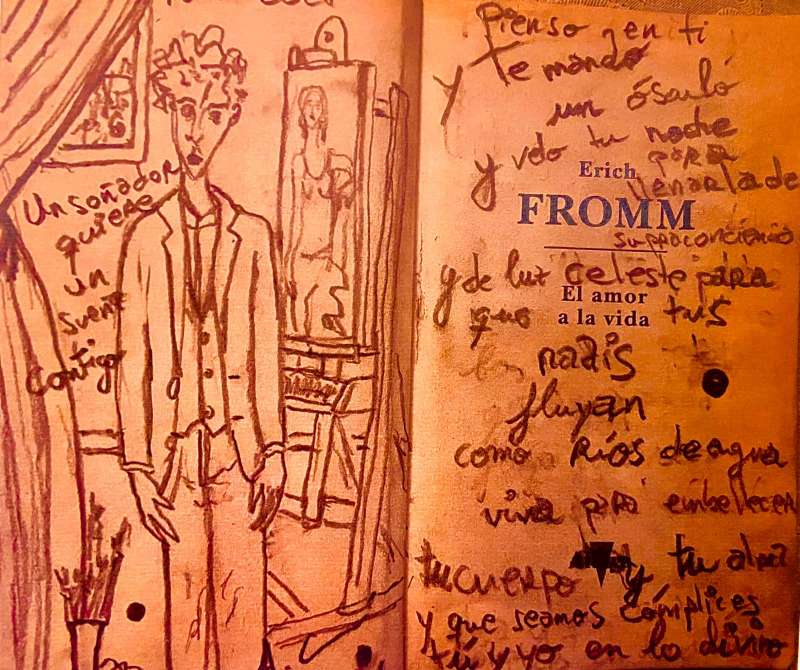 Un soñador
quiere
un
contigo
Pienso en ti
y te mando
un ósculo
y velo tu noche
para
Erich
llenarla de
FROMM
supraconciencia
y de luz celeste para
El amor
que tus
a la vida
nadis
fluyan
como ríos de agua
viva para embellecer
tu cuerpo y tu alma
y que seamos cómplices
tú y yo en lo divino